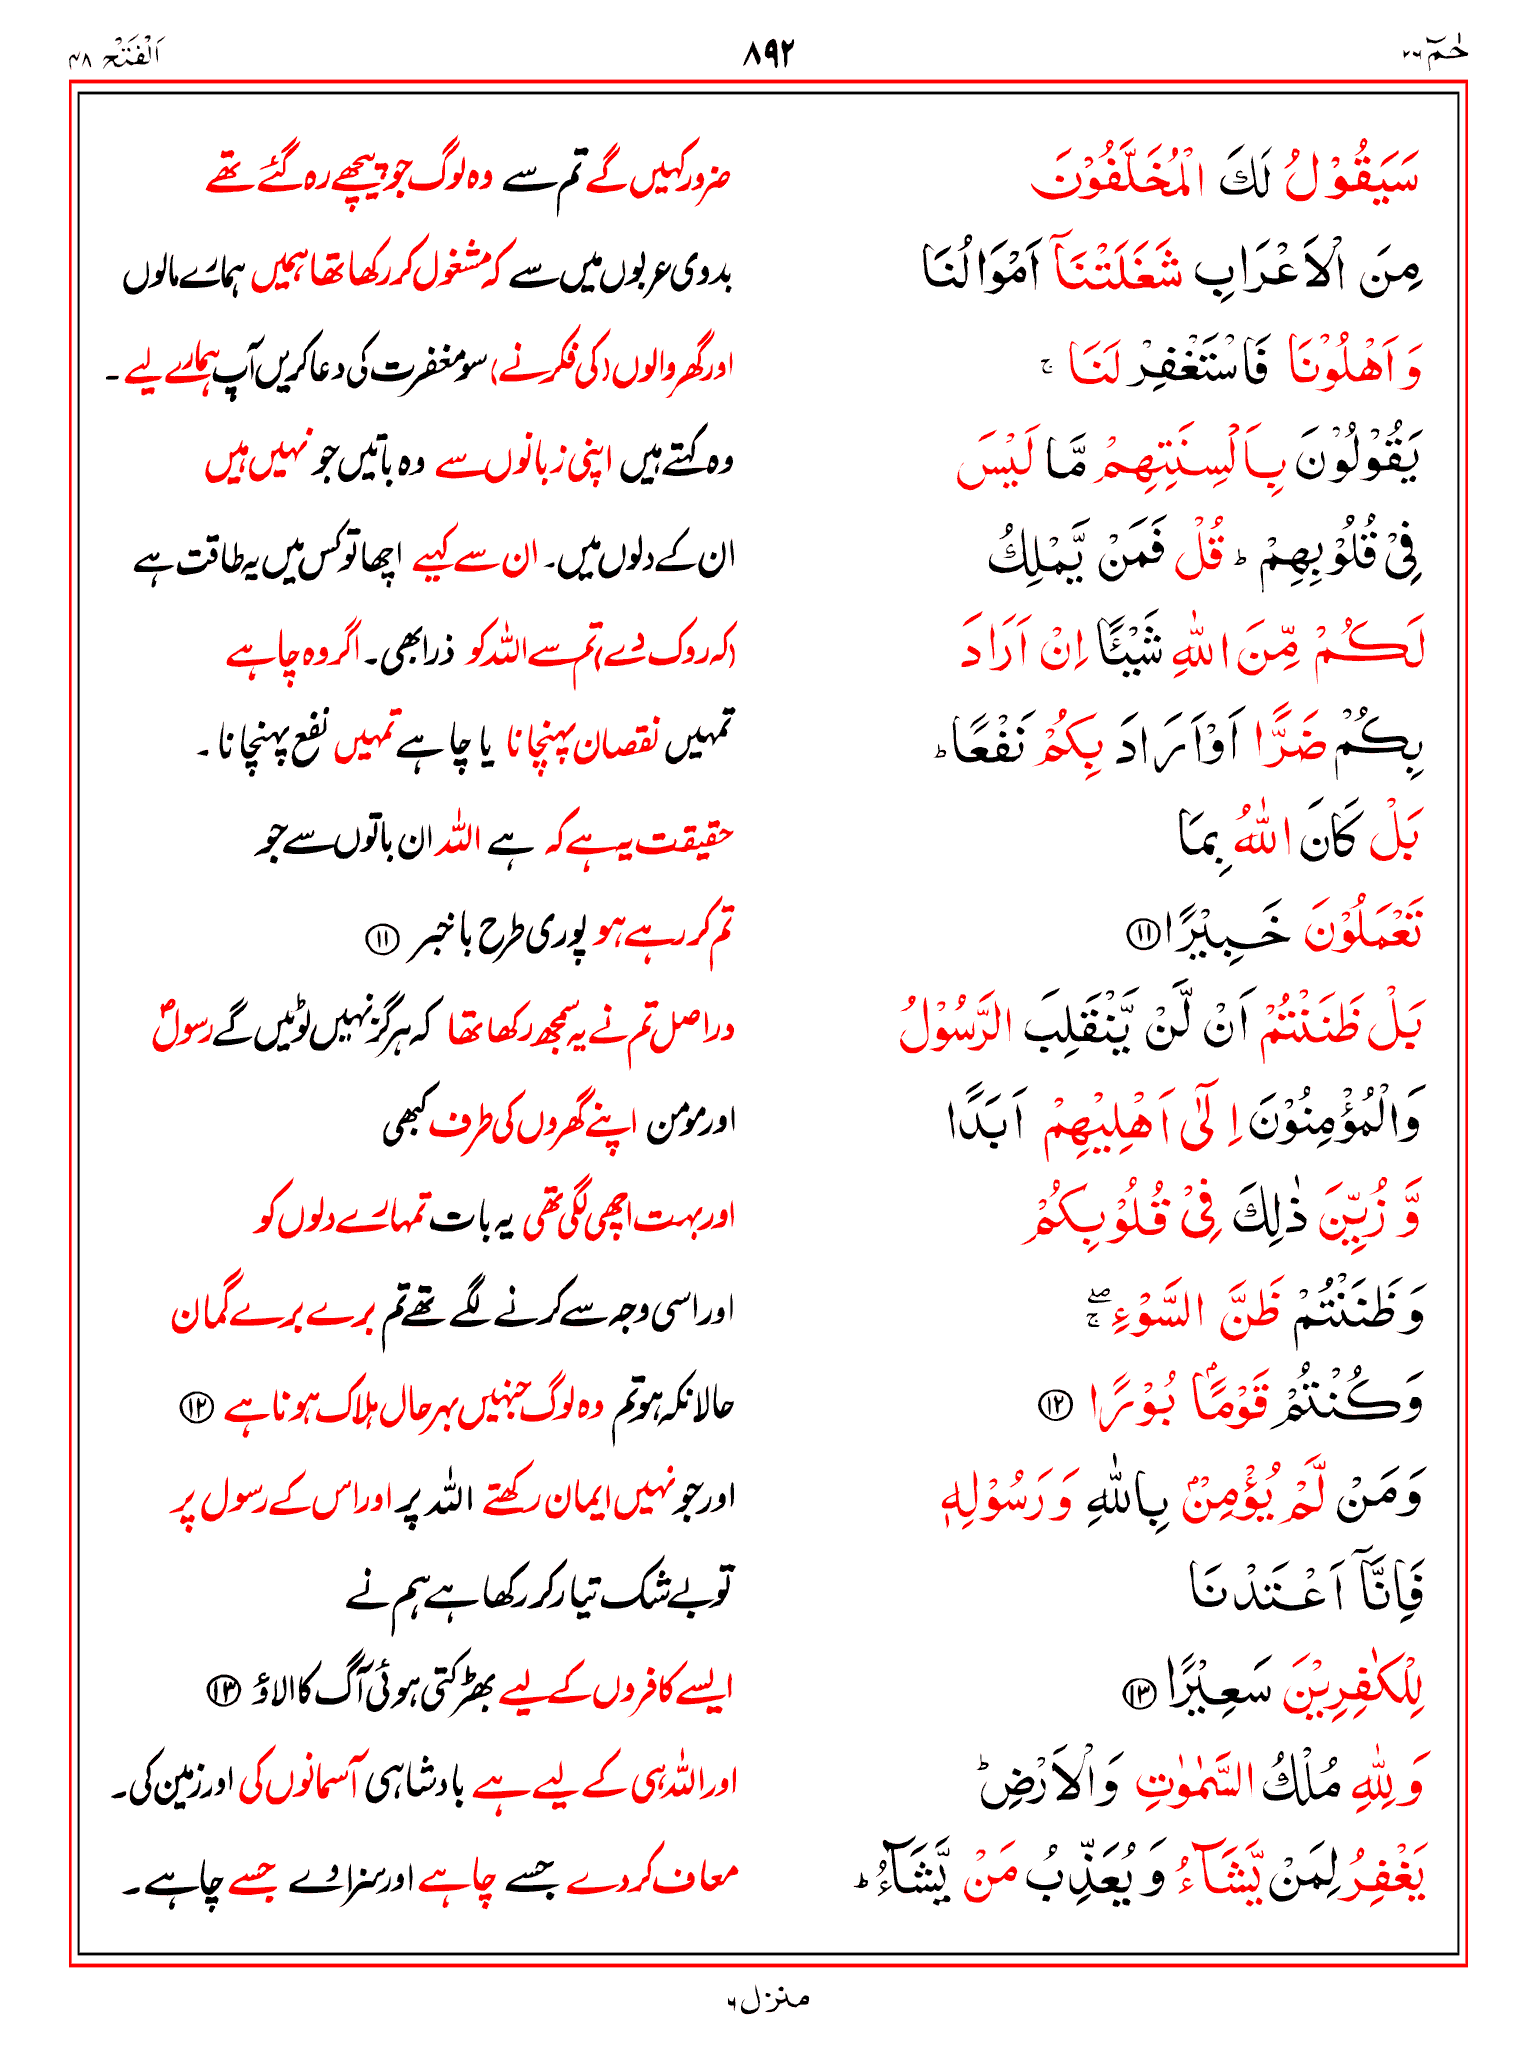 حٰمٓ ۲۶ ۸۹۲ اَلْفَتْح ۴۸
سَيَقُوْلُ لَكَ الْمُخَلَّفُوْنَ ضرور کہیں گے تم سے وہ لوگ جو پیچھے رہ گئے تھے
مِنَ الْاَعْرَابِ شَغَلَتْنَاۤ اَمْوَالُنَا بدوی عربوں میں سے کہ مشغول کر رکھا تھا ہمیں ہمارے مالوں
وَاَهْلُوْنَا فَاسْتَغْفِرْ لَنَا ۚ اور گھر والوں (کی فکر نے) سو مغفرت کی دعا کریں آپ ہمارے لیے ۔
يَقُوْلُوْنَ بِاَلْسِنَتِهِمْ مَّا لَيْسَ وہ کہتے ہیں اپنی زبانوں سے وہ باتیں جو نہیں ہیں
فِيْ قُلُوْبِهِمْ ؕ قُلْ فَمَنْ يَّمْلِكُ ان کے دلوں میں۔ ان سے کہیے اچھا تو کس میں یہ طاقت ہے
لَكُمْ مِّنَ اللّٰهِ شَيْـًٔا اِنْ اَرَادَ (کہ روک دے) تم سے اللہ کو ذرا بھی۔ اگر وہ چاہے
بِكُمْ ضَرًّا اَوْ اَرَادَ بِكُمْ نَفْعًا ؕ تمہیں نقصان پہنچانا یا چاہے تمہیں نفع پہنچانا ۔
بَلْ كَانَ اللّٰهُ بِمَا حقیقت یہ ہے کہ ہے اللہ ان باتوں سے جو
تَعْمَلُوْنَ خَبِيْرًا ⑪ تم کر رہے ہو پوری طرح باخبر ⑪
بَلْ ظَنَنْتُمْ اَنْ لَّنْ يَّنْقَلِبَ الرَّسُوْلُ دراصل تم نے یہ سمجھ رکھا تھا کہ ہرگز نہیں لوٹیں گے رسولؐ
وَالْمُؤْمِنُوْنَ اِلٰۤى اَهْلِيْهِمْ اَبَدًا اور مومن اپنے گھروں کی طرف کبھی
وَّزُيِّنَ ذٰلِكَ فِيْ قُلُوْبِكُمْ اور بہت اچھی لگی تھی یہ بات تمہارے دلوں کو
وَظَنَنْتُمْ ظَنَّ السَّوْءِ ۖۚ اور اسی وجہ سے کرنے لگے تھے تم برے برے گمان
وَكُنْتُمْ قَوْمًۢا بُوْرًا ⑫ حالانکہ ہو تم وہ لوگ جنہیں بہرحال ہلاک ہونا ہے ⑫
وَمَنْ لَّمْ يُؤْمِنْۢ بِاللّٰهِ وَرَسُوْلِهٖ اور جو نہیں ایمان رکھتے اللہ پر اور اس کے رسول پر
فَاِنَّاۤ اَعْتَدْنَا تو بے شک تیار کر رکھا ہے ہم نے
لِلْكٰفِرِيْنَ سَعِيْرًا ⑬ ایسے کافروں کے لیے بھڑکتی ہوئی آگ کا الاؤ ⑬
وَلِلّٰهِ مُلْكُ السَّمٰوٰتِ وَالْاَرْضِ ؕ اور اللہ ہی کے لیے ہے بادشاہی آسمانوں کی اور زمین کی۔
يَغْفِرُ لِمَنْ يَّشَآءُ وَيُعَذِّبُ مَنْ يَّشَآءُ ؕ معاف کر دے جسے چاہے اور سزا دے جسے چاہے۔
منزل ۶